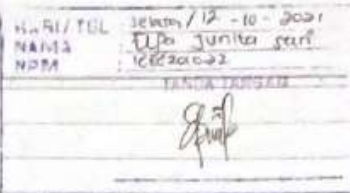 HARI/TGL : selasa / 12 - 10 - 2021
NAMA : Elpa Junita sari
NPM :
TANDA TANGAN